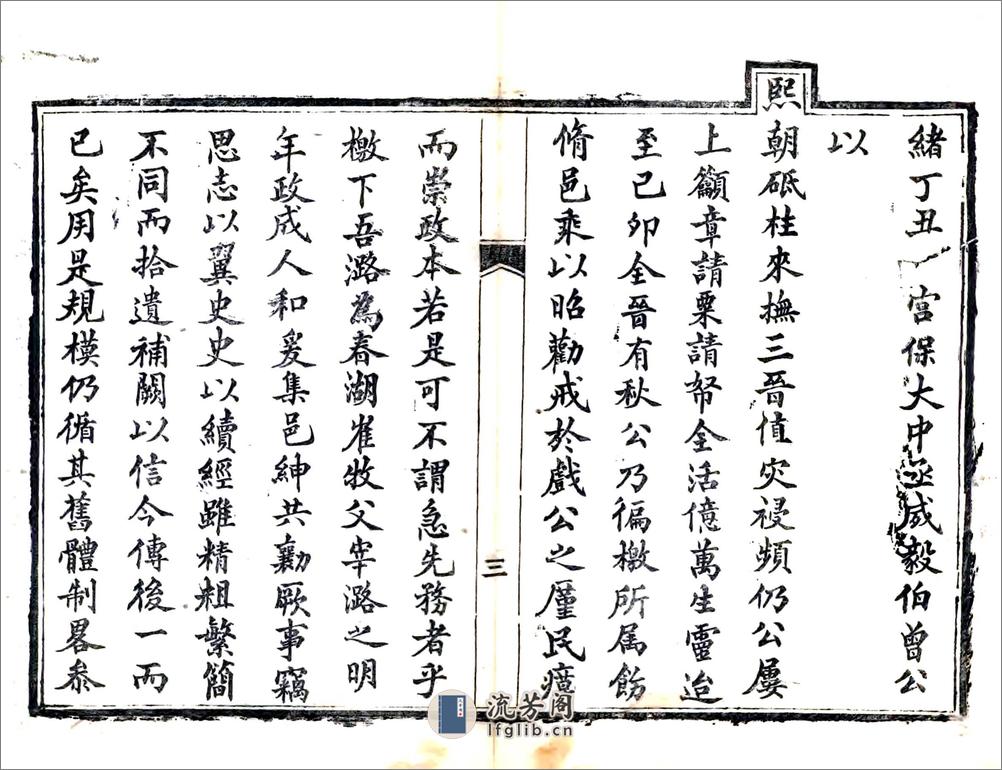 緒丁丑 宫保大中丞威毅伯曾公
以
熙
朝砥柱來撫三晉值灾祲頻仍公屢
上籲章請粟請帑全活億萬生靈迨
至己卯全晉有秋公乃徧檄所属飭
脩邑乘以昭勸戒於戲公之厪民瘼
三
而崇政本若是可不謂急先務者乎
檄下吾潞爲春湖崔牧父宰潞之明
年政成人和爰集邑紳共襄厥事竊
思志以翼史史以續經雖精粗繁簡
不同而拾遺補闕以信今傳後一而
已矣用是規模仍循其舊體制畧叅
流芳阁
lfglib.cn